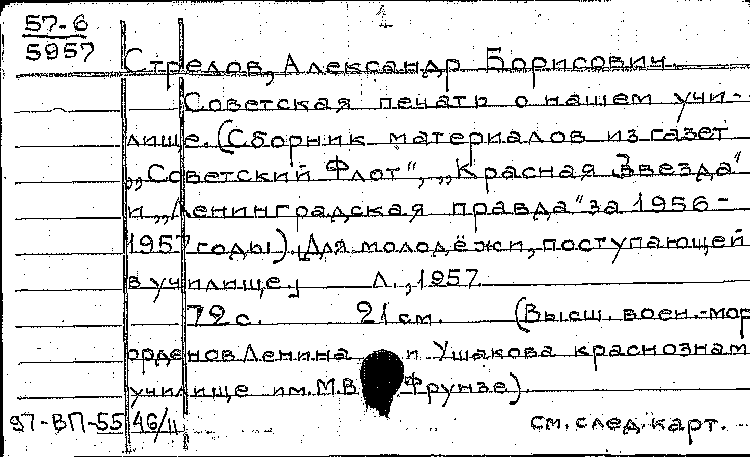 1
57-6
5957
Стрелов, Александр Борисович.
Советская печать о нашем учи-
лище. (Сборник материалов из газет
„Советский Флот", „Красная Звезда"
и „Ленинградская правда" за 1956-
1957 годы). [Для молодёжи, поступающей
в училище]    Л., 1957.
72 с.    21 см.    (Высш. воен.-мор
орденов Ленина и Ушакова краснознам
училище им. М.В. Фрунзе).
97-ВП-55 46/11    см. след. карт.